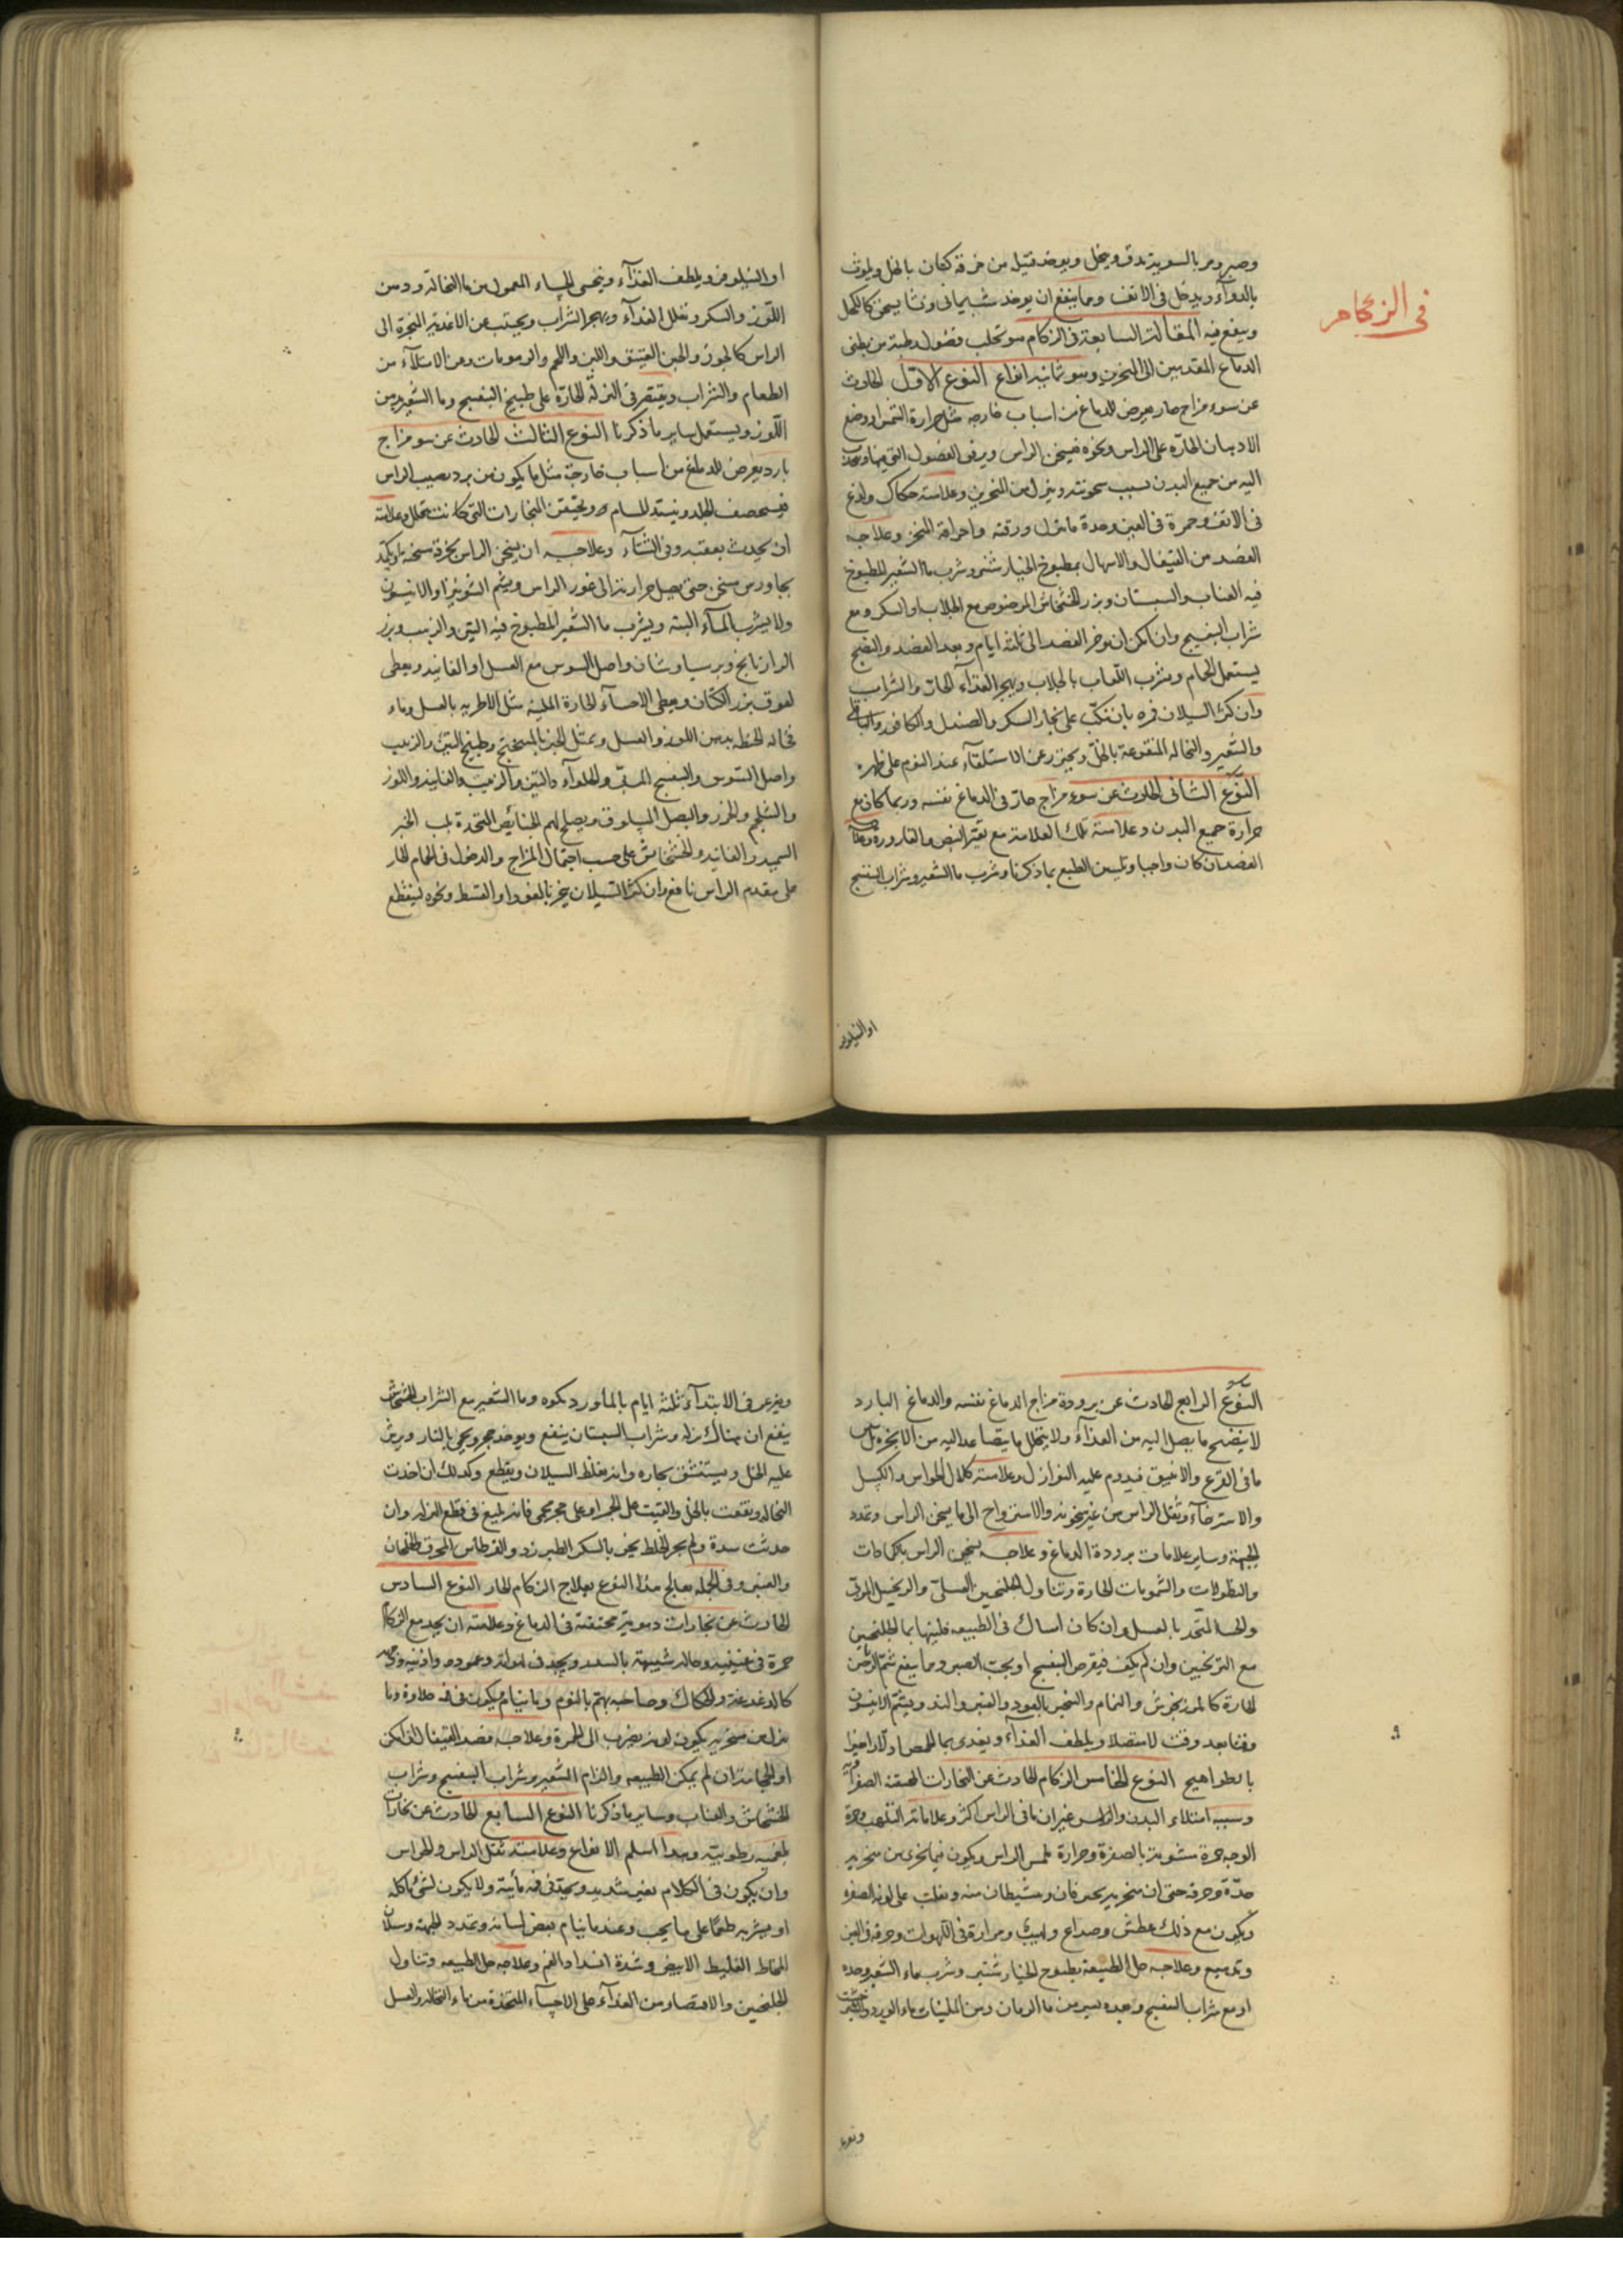 في الزكام
وصبر ومر بالسوية يدق وينخل ويوخذ فتيلة من خرقة كتان بالخل ويلوث
بالدوآء ويدخل في الانف ومما ينفع ان يوخذ شب يماني ونشا يسحق كالكحل
وينفخ فيه المقالة السابعة في الزكام هو تحلب فضول رطبة من بطني
الدماغ المقدمين الى المنخرين وهو ثمانية انواع النوع الاول الحادث
عن سوء مزاج حار يعرض للدماغ من اسباب خارجة مثل حرارة الشمس او وضع
الادهان الحارة على الراس ونحوه فيسخن الراس ويرقق الفضول التي فيها
اليه من جميع البدن بسبب سخونته وينزل من المنخرين وعلامته حكاك ولذع
في الانف وحمرة في العين وحدة ما ينزل ورقته واحراقه المنخر وعلاجه
الفصد من القيفال والاسهال بمطبوخ الخيار شنبر وشرب ما الشعير المطبوخ
فيه العناب والسبستان وبزر الخشخاش المرضوض مع الجلاب او السكر ومع
شراب البنفسج وان امكن ان يوخر الفصد الى ثلثة ايام وبعد الفصد والنضج
يستعمل الحمام ويشرب اللعاب بالجلاب ويهجر الغذآء الحار والشراب
وان كثر السيلان فمره بان ينكب على بخار السكر والصندل والكافور والباقلي
والشعير والنخالة المنقوعة بالخل ويحترز عن الاستلقآء عند النوم على ظهره
النوع الثاني الحادث عن سوء مزاج حار في الدماغ نفسه وربما كان مع
حرارة جميع البدن وعلامته تلك العلامة مع تغير النبض والقارورة وعلاجه
الفصد ان كان واجبا وتليين الطبع بما ذكرنا وشرب ما الشعير وشراب البنفسج
او النيلوفر
او النيلوفر ويلطف الغذآء ويتحسى الحساء المعمول من ما النخالة ودهن
اللوز والسكر ويقلل الغذآء ويهجر الشراب ويجتنب عن الاغذية المبخرة الى
الراس كالجوز والجبن العتيق واللبن واللحم والدسومات ومن الامتلآء من
الطعام والشراب ويقتصر في النزلة الحارة على طبيخ البنفسج وما الشعير بدهن
اللوز ويستعمل ساير ما ذكرنا النوع الثالث الحادث عن سو مزاج
بارد يعرض للدماغ من اسباب خارجة مثل ما يكون من برد يصيب الراس
فيستحصف الجلد وينسد المسام ويحتقن البخارات التي كانت تتحلل وعلامته
ان يحدث بعقبه وفي الشتآء وعلاجه ان يسخن الراس بخرقة مسخنة او يكمد
بجاورس مسخن حتى يصل حرارته الى غور الراس ويشم الشونيز او الانيسون
ولا يشرب المآء البتة ويشرب ما الشعير المطبوخ فيه التين والزبيب وبزر
الرازيانج وبرسياوشان واصل السوس مع العسل او الفانيد ويعطى
لعوق بزر الكتان ويعطى الاحسآء الحارة الملينة مثل الاطرية بالعسل وماء
نخالة الحنطة بدهن اللوز والعسل ويمثل الخبز بالميبختج وطبيخ التين والزبيب
واصل السوس والبنفسج المربى والحلوآء والتين والزبيب والفانيد واللوز
والشلجم والجزر والبصل المسلوق ويصلح لهم الخبائص المتخذة بلب الخبز
السميد والفانيد والخشخاش على حسب احتمال المزاج والدخول في الحمام الحار
على مقدم الراس نافع وان كثر السيلان يبخر بالعود او القسط ونحوه لينقطع
النوع الرابع الحادث عن برودة مزاج الدماغ نفسه والدماغ البارد
لا ينضج ما يصل اليه من الغذآء ولا يتحلل ما يتصاعد اليه من الابخرة
ما في القرع والانبيق فيدوم عليه النوازل وعلامته كلال الحواس والكسل
والاسترخآء وثقل الراس من غير سخونة والاسترواح الى ما يسخن الراس وتمدد
الجبهة وساير علامات برودة الدماغ وعلاجه يسخن الراس بالكمادات
والنطولات والشمومات الحارة وتناول الجلنجبين العسلي والزنجبيل المربى
والحسا المتخذ بالعسل وان كان امساك في الطبيعة فلينها بما الجلنجبين
مع الترنجبين وان لم يكف فبقرص البنفسج او بحب الصبر ومما ينفع شم
الحارة كالمرزنجوش والنمام والتبخير بالعود والعنبر والند ويشم الانيسون
وقتا بعد وقت لاستصلاء ويلطف الغذآء ويغذى بما الحمص اولا واخيرا
بالطواهيج النوع الخامس الزكام الحادث عن البخارات المحتقنة الصفرآوية
وسببه امتلاء البدن والراس غير ان ما في الراس اكثر وعلامته التلهب وحمرة
الوجه حمرة مشوبة بالصفرة وحرارة ملمس الراس ويكون فيما يجري من منخريه
حدة وحرقة حتى ان منخريه يحترقان ويتشيطان منه ويغلب على لونه الصفرة
ويكون مع ذلك عطش وصداع ولهيب ومرارة في اللهوات وحرقة في العين
وتدميع وعلاجه حل الطبيعة بمطبوخ الخيار شنبر وشرب ماء الشعير وحده
او مع شراب البنفسج وحده يسير من ما الرمان ومن الملينات ماء الورد
ويغرغر في الابتدآء ثلثة ايام بالماورد بكوه وما الشعير مع الشراب الخشخاش
ينفع ان هناك نزلة وشراب السبستان ينفع ويوخذ حجر ويحمى بالنار ويرش
عليه الخل ويستنشق بخاره وانه يغلظ السيلان ويقطع وكذلك ان اخذت
النخالة ونقعت بالخل والقيت على الجمر او على حجر محمي فانه بليغ في قطع النزلة وان
حدثت سدة ولم يجر الخلط يبخر بالسكر الطبرزد والقرطاس المحرق
والعنبر وفي الجملة يعالج هذا النوع بعلاج الزكام الحار النوع السادس
الحادث عن بخارات دموية محتقنة في الدماغ وعلامته ان يجد مع الزكام
حمرة في عينيه وحالة شبيهة بالسعد ويجد في لهواته وعموده واذنيه وحكه
كالدغدغة والحكاك وصاحبه يهتم بالنوم ولا ينام يكون في فمه حلاوة وما
ينزل من منخريه يكون لونه يضرب الى الحمرة وعلاجه فصد القيفال ان امكن
او الحجامة ان لم يمكن الطبيعة والزام الشعير وشراب البنفسج وشراب
الخشخاش والعناب وساير ما ذكرنا النوع السابع الحادث عن بخارات
بلغمية رطوبية وهذا اسلم الانواع وعلامته ثقل الراس والحواس
وان يكون في الكلام تغير شديد ويجد في فمه مايية ولا يكون لشي ياكله
او يشربه طعما على ما يجب وعندما ينام يعض لسانه وتمدد الجبهة وسيلان
المخاط الغليظ الابيض وشدة انسداد الفم وعلاجه حل الطبيعة وتناول
الجلنجبين والاقتصار من الغذآء على الاحسآء المتخذة من ماء النخالة والعسل